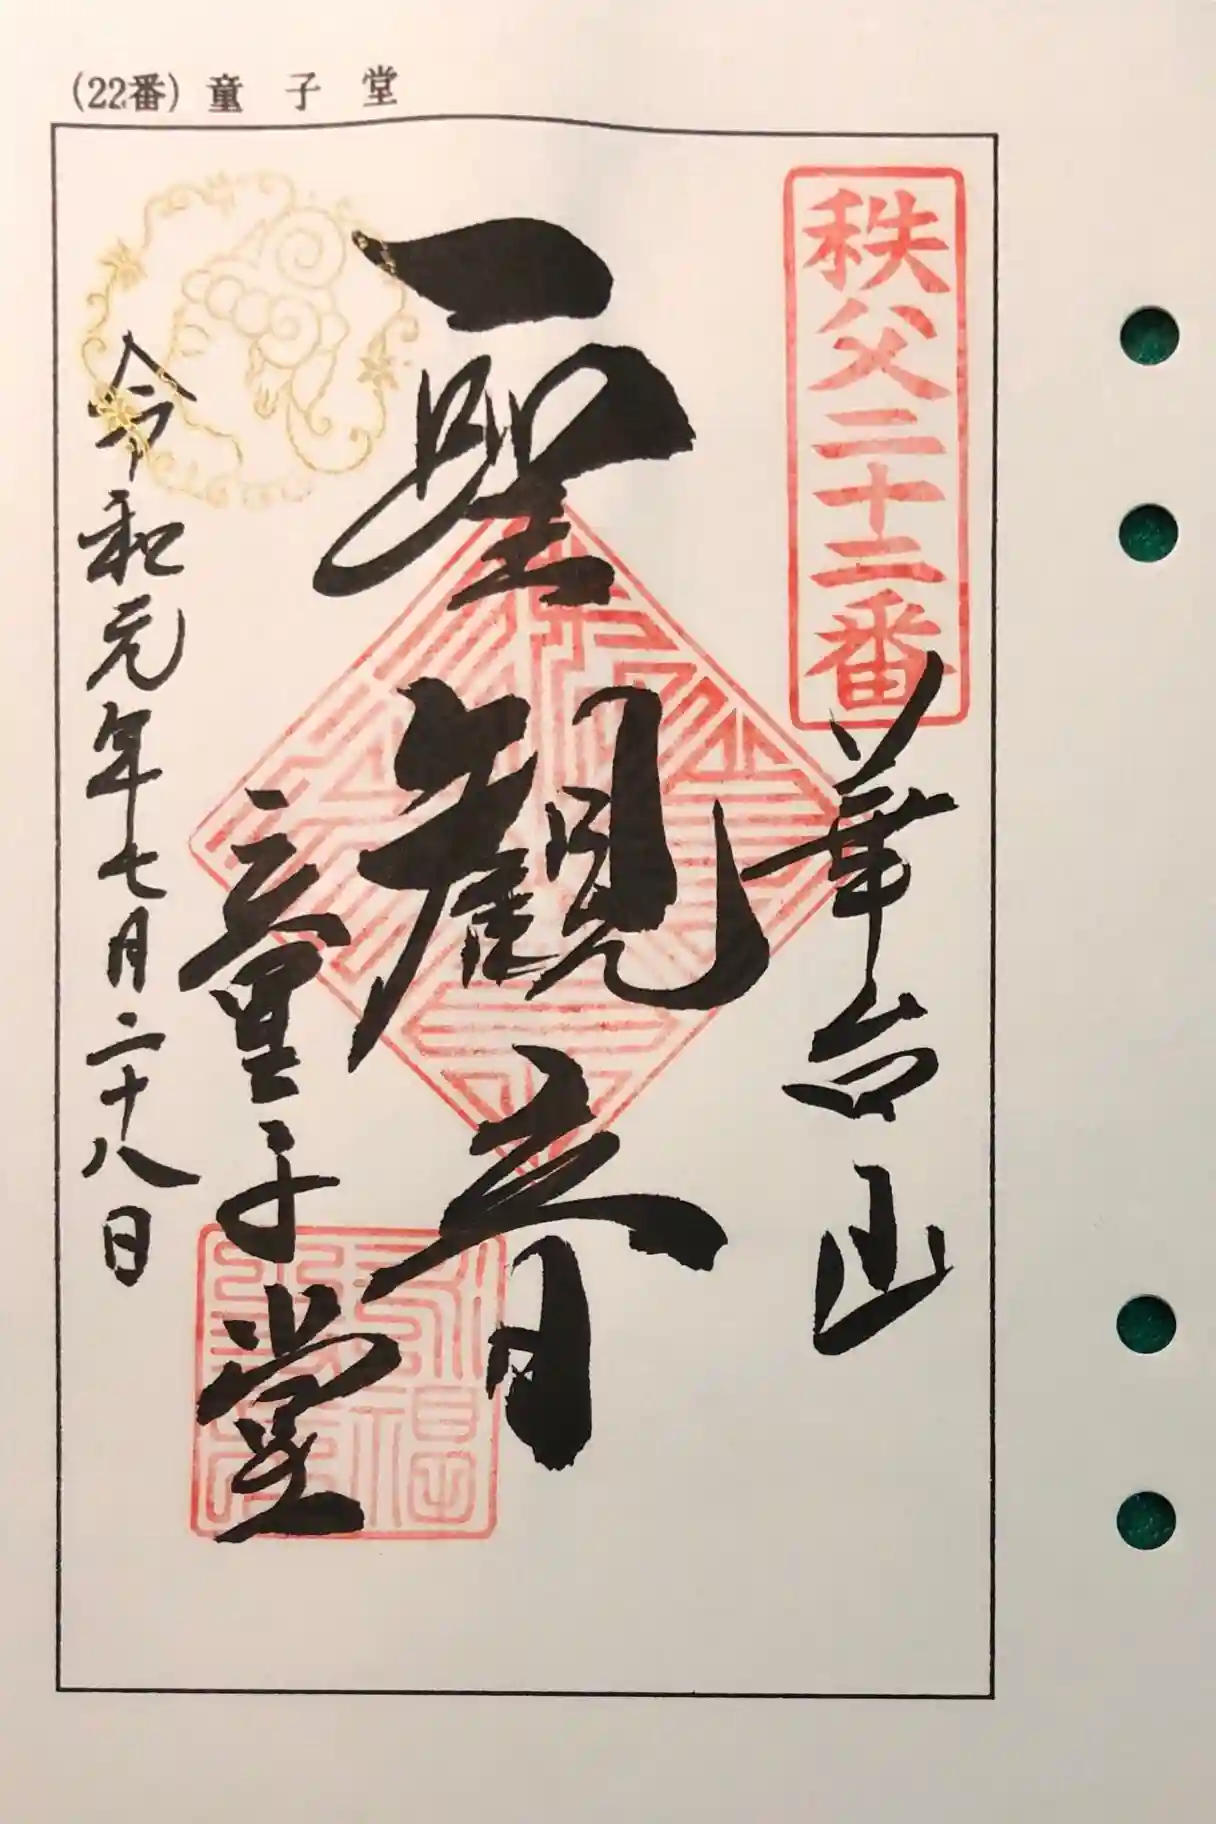 (22番) 童子堂
秩父二十二番
華台山
一聖観音
童子堂
令和元年七月二十八日